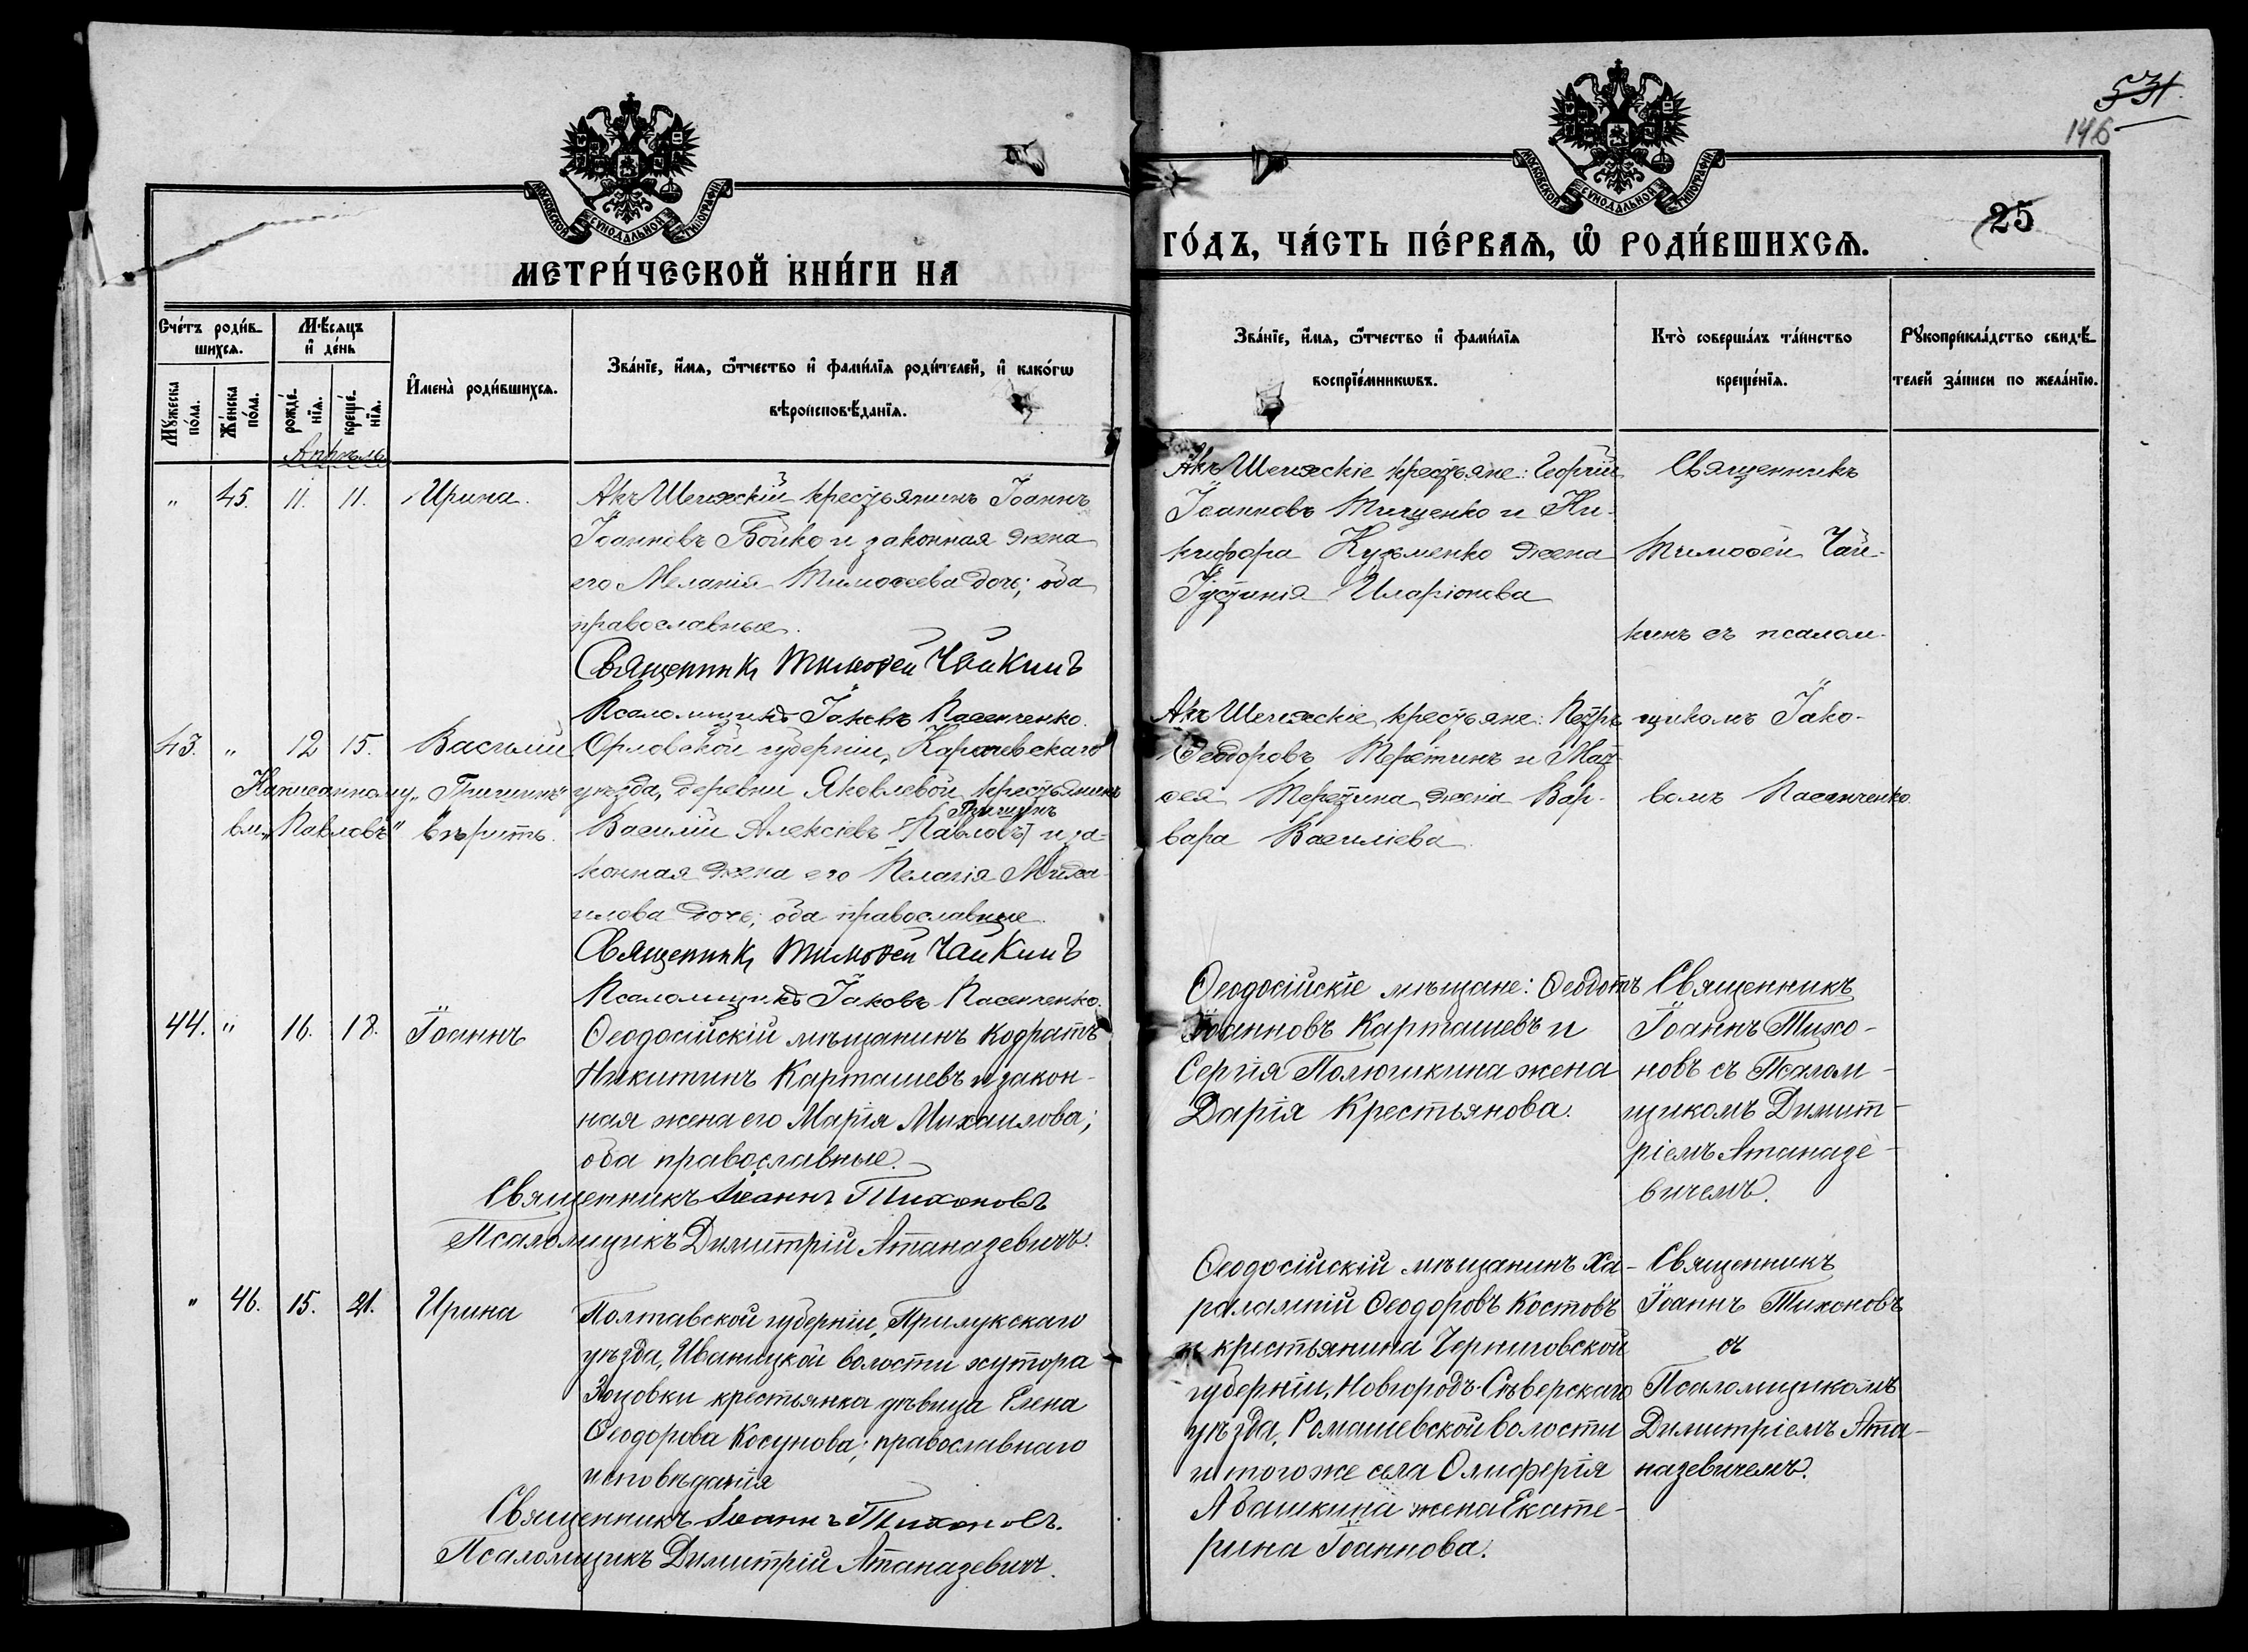 531
146
25
МОСКОВСКОЙ СѴНОДАЛЬНОЙ ТИПОГРАФІИ.
МОСКОВСКОЙ СѴНОДАЛЬНОЙ ТИПОГРАФІИ.
МЕТРИ́ЧЕСКОЙ КНИ́ГИ НА
ГО́ДЪ, ЧА́СТЬ ПЕ́РВАѦ, Ѡ҆ РОДИ́ВШИХСѦ.
Сче́тъ роди́в-
шихсѧ.
Мѣ́сѧцъ
и҆ де́нь
Мꙋ́жеска
по́ла.
Же́нска
по́ла.
рожде́-
нїѧ.
креще́-
нїѧ.
И҆мена̀ роди́вшихсѧ.
Зва́нїе, и҆́мѧ, ѻ҆́тчество и҆ фами́лїѧ роди́телей, и҆ како́гѡ
вѣроисповѣ́данїѧ.
Зва́нїе, и҆́мѧ, ѻ҆́тчество и҆ фами́лїѧ
воспрїе́мникѡвъ.
Кто̀ соверша́лъ та́инство
креще́нїѧ.
Рꙋкоприкла́дство свидѣ́-
телей за́писи по жела́нїю.
Апрѣль
" 45. 11. 11. Ирина.
Акъ Шеихскій крестьянинъ Іоаннъ
Іоанновъ Бойко и законная жена
его Меланія Тимоѳеева дочь; оба
православные.
Священникъ Тимоѳей Чайкинъ
Псаломщикъ Іаковъ Пасенченко.
Акъ Шеихскіе крестьяне: Георгій
Іоанновъ Тищенко и Ни-
кифора Кузьменко жена
Іустинія Иларіонова
Священникъ
Тимоѳей Чай-
кинъ съ псалом-
43. " 12 15. Василій
Написанному „Гришинъ"
вм. „Павловъ" вѣрить.
Орловской губерніи, Карачевскаго
уѣзда, деревни Яковлевой крестьянинъ
Гришинъ
Василій Алексіевъ [Павловъ] и за-
конная жена его Пелагія Миха-
илова дочь; оба православные.
Священникъ Тимоѳей Чайкинъ
Псаломщикъ Іаковъ Пасенченко.
Акъ Шеихскіе крестьяне: Петръ
Ѳеодоровъ Теретинъ и Мат-
ѳея Теретина жена Вар-
вара Василіева
щикомъ Іако-
вомъ Пасенченко.
44. " 16. 18. Іоаннъ
Ѳеодосійскій мѣщанинъ Кодратъ
Никитинъ Карташевъ и закон-
ная жена его Марія Михаилова;
оба православные.
Священникъ Іоаннъ Тихоновъ
Псаломщикъ Димитрій Атаназевичъ.
Ѳеодосійскіе мѣщане: Ѳеодотъ
Іоанновъ Карташевъ и
Сергія Полюшкина жена
Дарія Крестьянова.
Священникъ
Іоаннъ Тихо-
новъ съ Псалом-
щикомъ Димит-
ріемъ Атаназе-
вичемъ.
" 46. 15. 21. Ирина
Полтавской губерніи, Прилукскаго
уѣзда, Иваницкой волости хутора
крестьянка дѣвица Елена
Ѳеодорова Косунова; православнаго
исповѣданія
Священникъ Іоаннъ Тихоновъ.
Псаломщикъ Димитрій Атаназевичъ.
Ѳеодосійскій мѣщанинъ Ха-
ралампій Ѳеодоровъ Костовъ
и крестьянина Черниговской
губерніи, Новгородъ-Сѣверскаго
уѣзда, Ромашевской волости
и того же села Олиферія
Абашкина жена Екате-
рина Іоаннова.
Священникъ
Іоаннъ Тихоновъ
съ
Псаломщикомъ
Димитріемъ Ата-
назевичемъ.